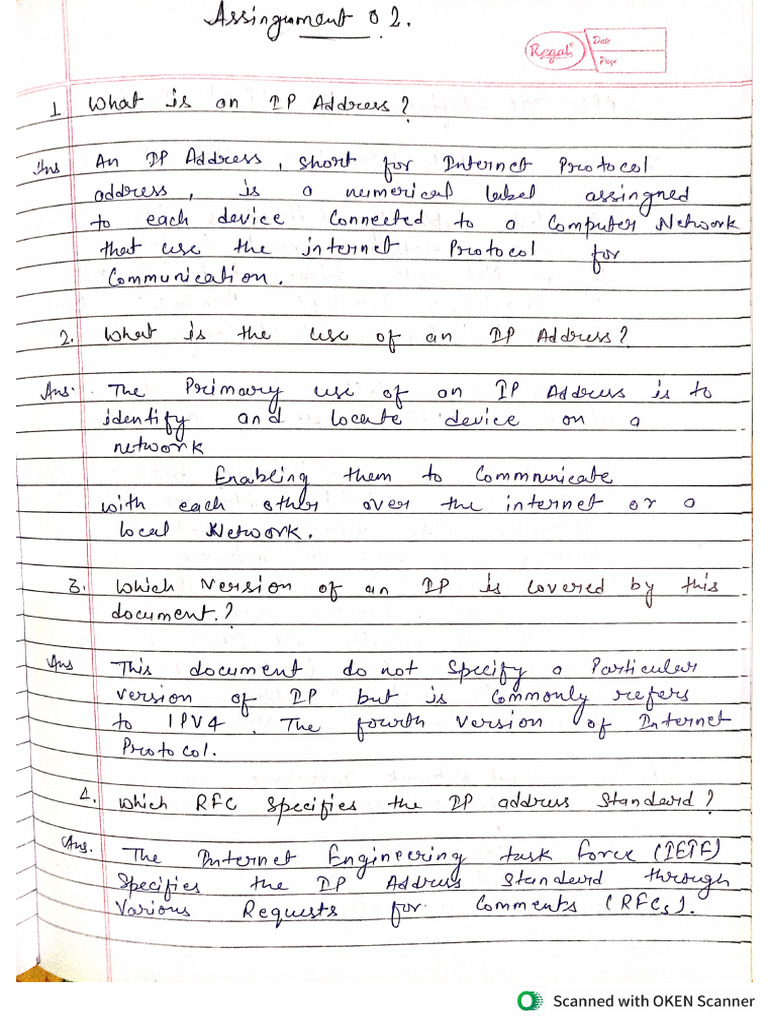 Assingnment 02.
Regal
Date
Page
1 What is an IP Address?
Ans An IP Address, short for Internet Protocol
address, is a numerical label assingned
to each device Connected to a Computer Network
that use the internet Protocol for
Communication.
2. What is the use of an IP Address?
Ans. The Primary use of an IP Address is to
identify and locate device on a
network
Enabling them to Commnuicate
with each other over the internet or a
local Network.
3. Which Version of an IP is Covered by this
document.?
Ans This document do not Specify a Particular
version of IP but is Commonly refers
to IPV4. The fourth Version of Internet
Protocol.
4. Which RFC Specifies the IP address Standard?
Ans. The Internet Engineering task force (IETF)
Specifies the IP Address Standard through
Various Requests for Comments (RFCs).
Scanned with OKEN Scanner